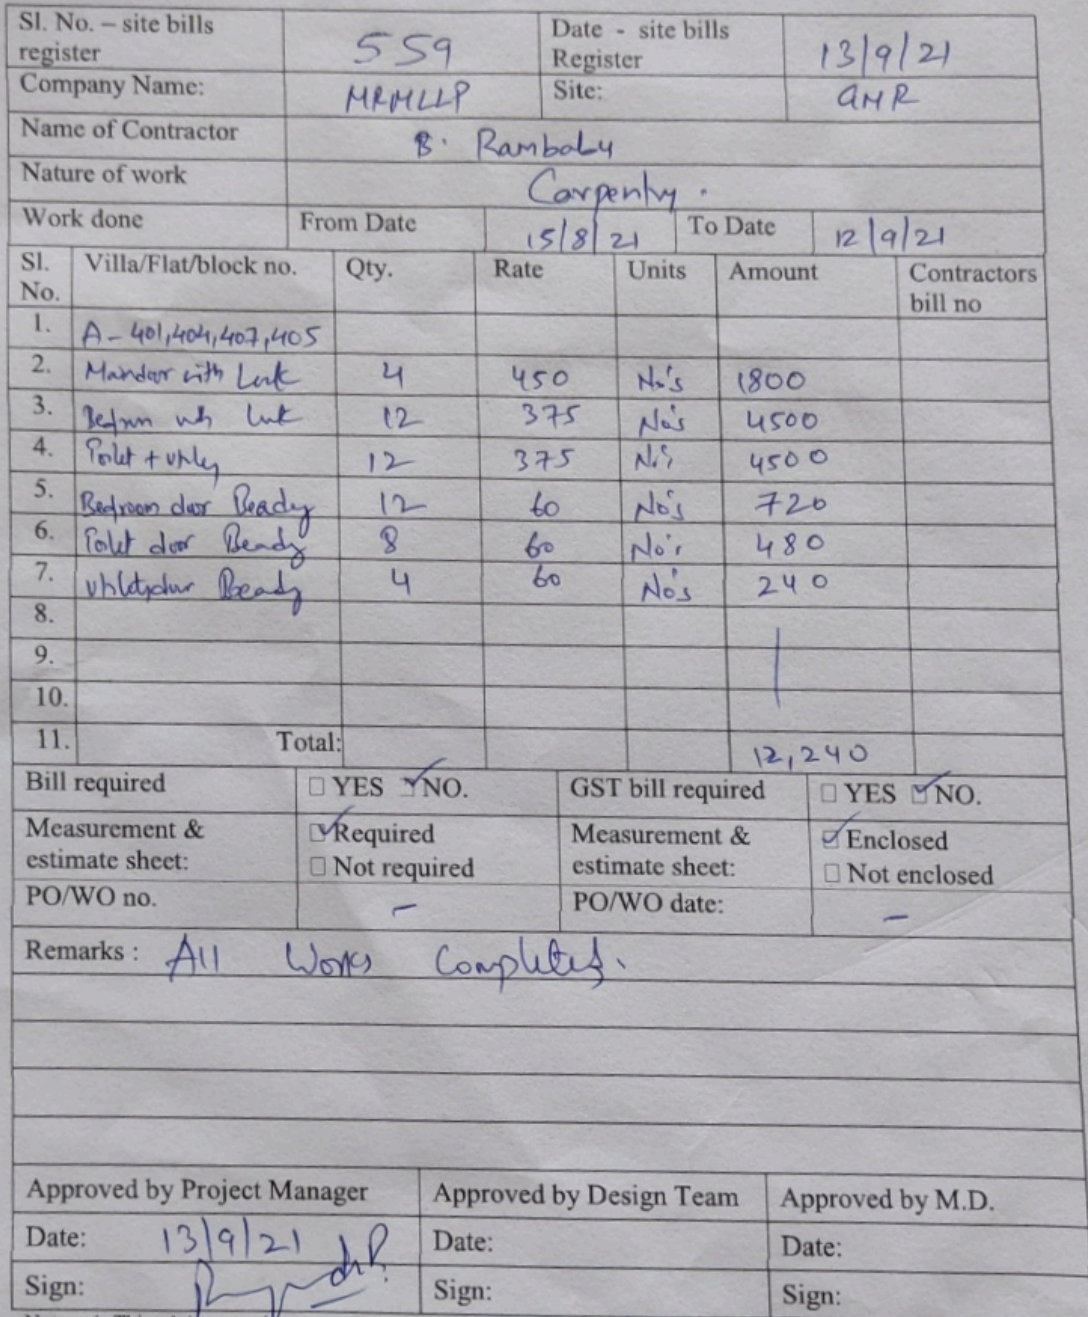 Sl. No. – site bills register 559 Date - site bills Register 13/9/21
Company Name: MRMLLP Site: GMR
Name of Contractor B. Rambabu
Nature of work Carpentry.
Work done From Date 15/8/21 To Date 12/9/21
Sl. No. Villa/Flat/block no. Qty. Rate Units Amount Contractors bill no
1. A-401,404,407,405
2. with 4 450 No's 1800
3. 12 375 No's 4500
4. 12 375 No's 4500
5. Bedroom door Beady 12 60 No's 720
6. door Beady 8 60 No's 480
7. Beady 4 60 No's 240
8.
9.
10.
11. Total: 12,240
Bill required □ YES ☑ NO. GST bill required □ YES ☑ NO.
Measurement & estimate sheet: ☑ Required Measurement & estimate sheet: ☑ Enclosed
□ Not required □ Not enclosed
PO/WO no. – PO/WO date: –
Remarks : All Works Completed.
Approved by Project Manager Approved by Design Team Approved by M.D.
Date: 13/9/21 Date: Date:
Sign: Sign: Sign: